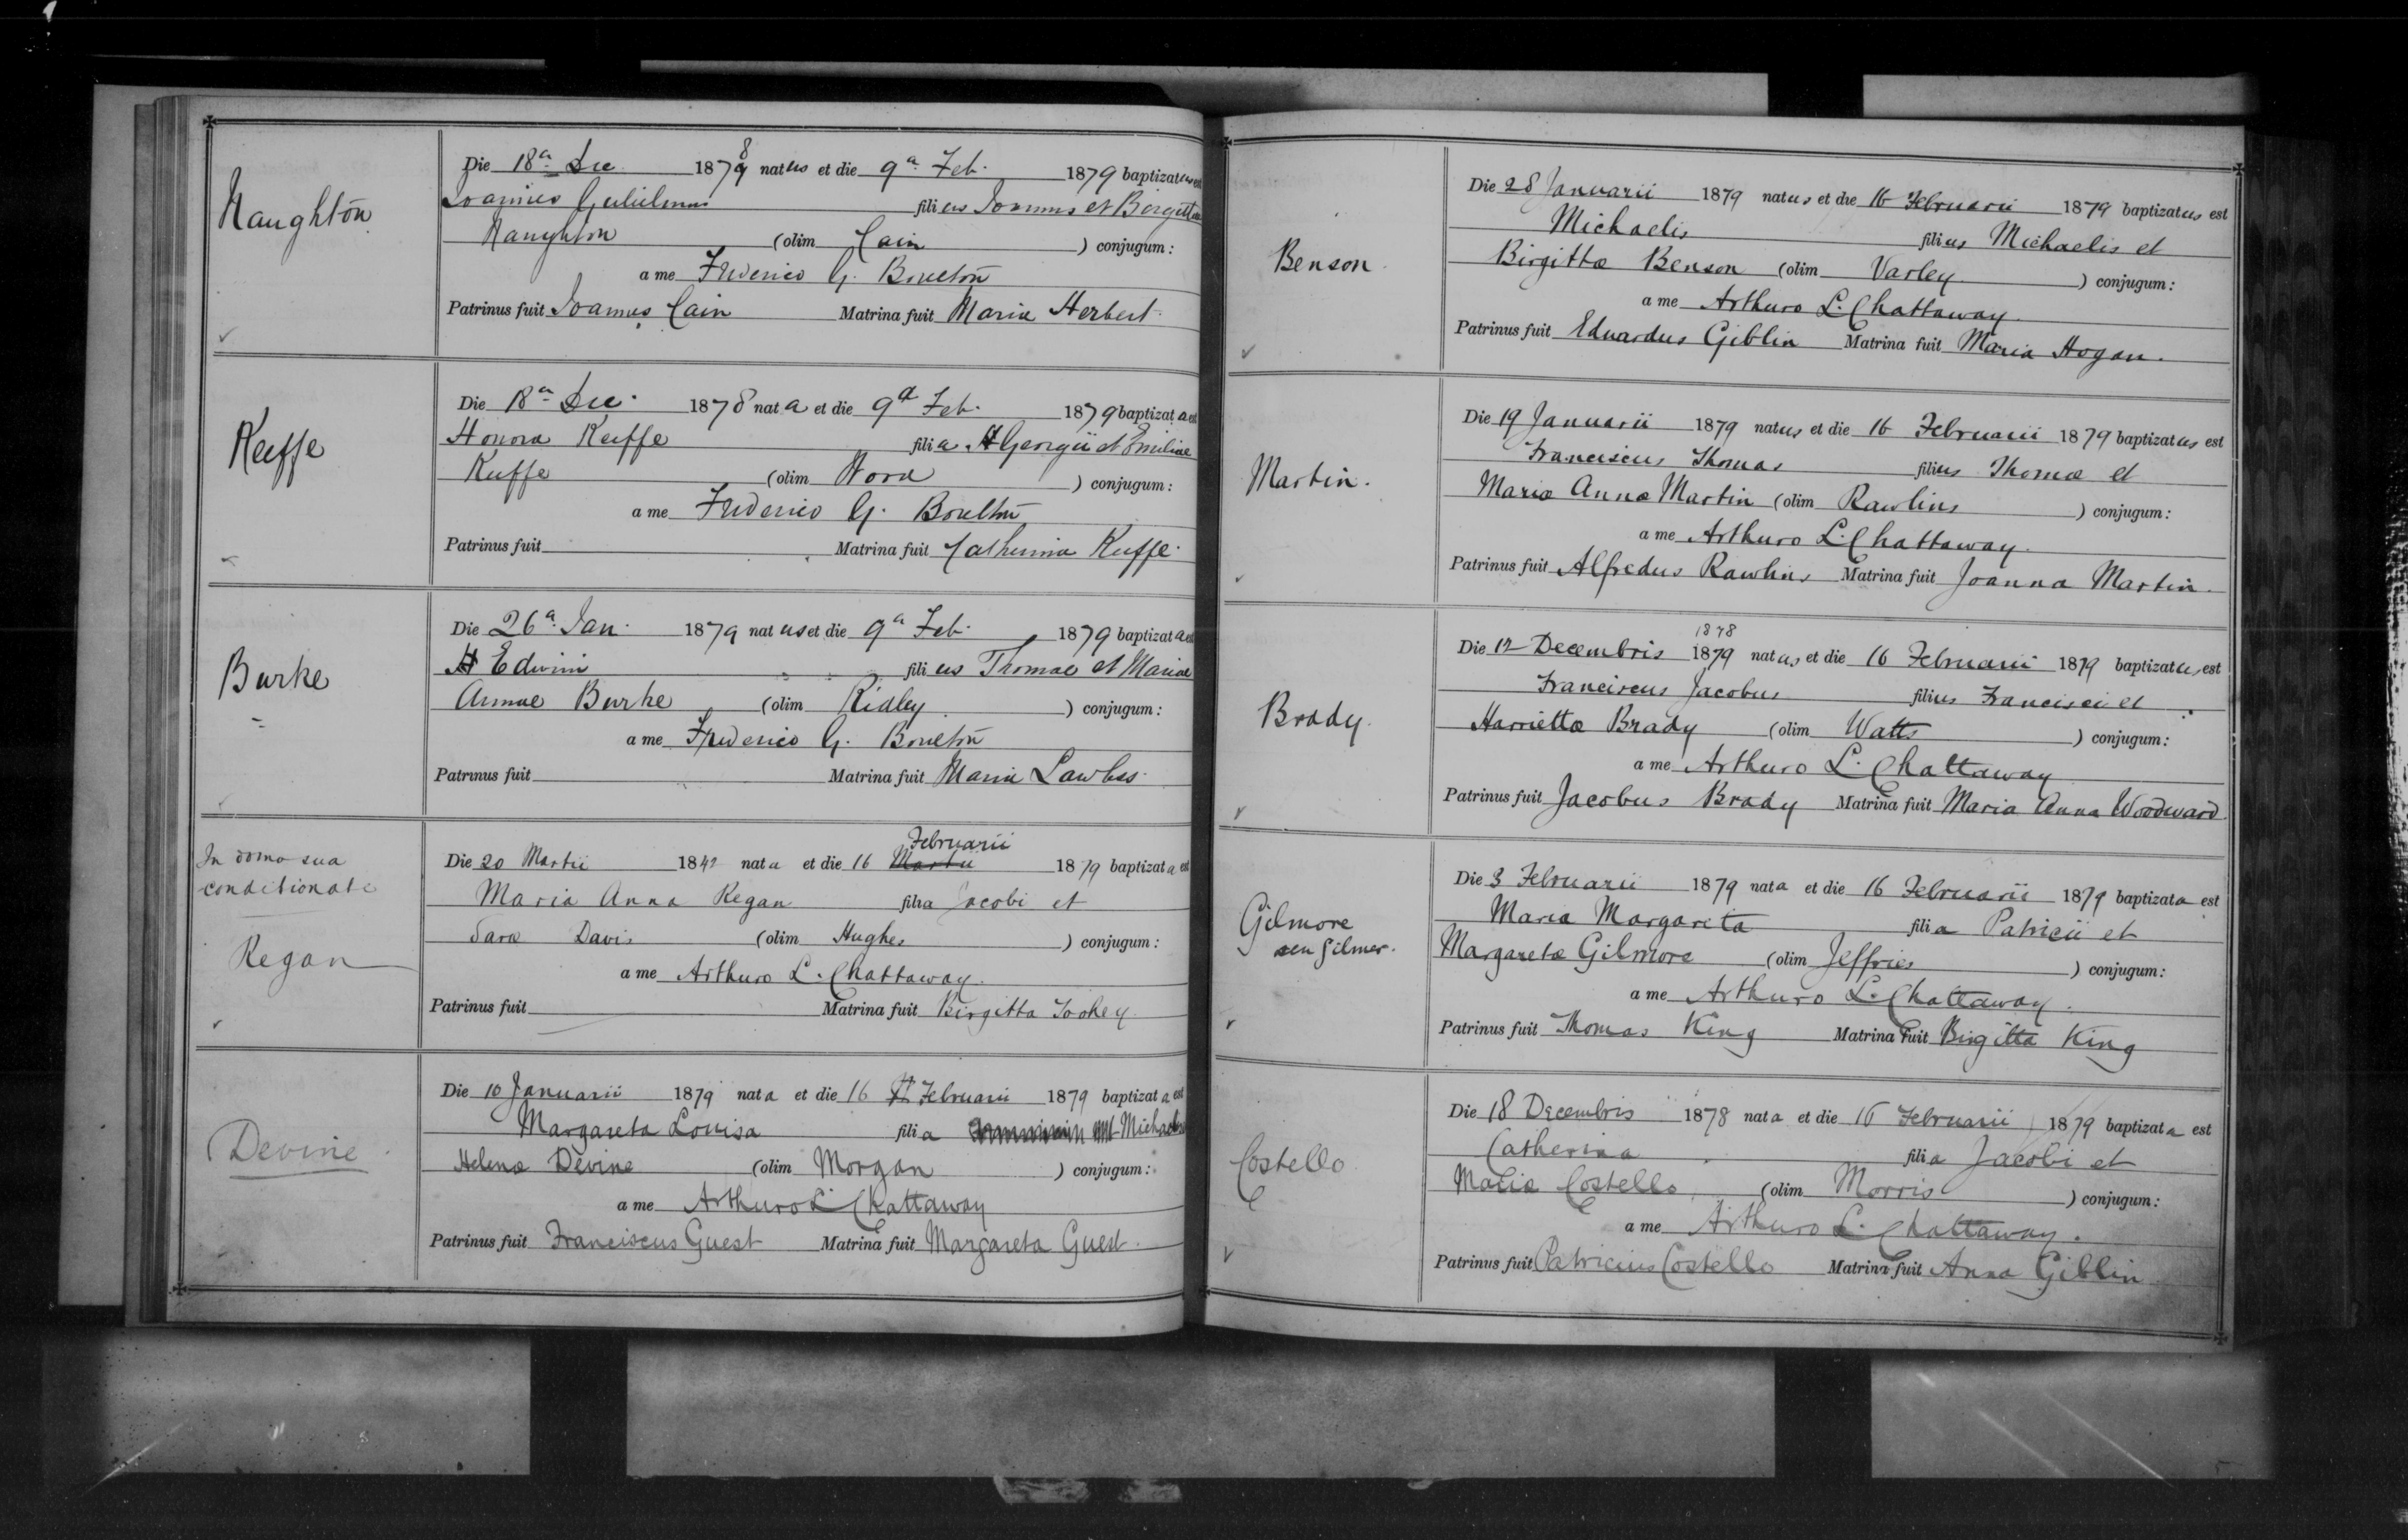 Naughton
Die 18a Dec. 1878 natus et die 9a Feb. 1879 baptizatus est
Joannes Gulielmus filius Joannis et Birgittae
Naughton (olim Cain ) conjugum:
a me Frederico G. Boulton
Patrinus fuit Joannes Cain Matrina fuit Maria Herbert.
Keeffe
Die 18a Dec. 1878 nata et die 9a Feb. 1879 baptizata est
Honora Keeffe filia Georgii et Emiliae
Keeffe (olim ) conjugum:
a me Frederico G. Boulton
Patrinus fuit Matrina fuit Catherina Keeffe.
Burke
Die 26a Jan. 1879 natus et die 9a Feb. 1879 baptizata est
Edwini filius Thomae et Mariae
Annae Burke (olim Ridley ) conjugum:
a me Frederico G. Boulton
Patrinus fuit Matrina fuit Maria Lawless.
In domo sua
conditionate
Regan
Februarii
Die 20 Martii 1842 nata et die 16 Martii 1879 baptizata est
Maria Anna Regan filia Jacobi et
Saræ Davis (olim Hughes ) conjugum:
a me Arthuro L. Chattaway.
Patrinus fuit Matrina fuit Birgitta Toohey
Devine
Die 10 Januarii 1879 nata et die 16 Februarii 1879 baptizata est
Margareta Louisa filia Michaelis
Helenæ Devine (olim Morgan ) conjugum:
a me Arthuro L. Chattaway
Patrinus fuit Franciscus Guest Matrina fuit Margareta Guest.
Benson.
Die 28 Januarii 1879 natus et die 16 Februarii 1879 baptizatus est
Michaelis filius Michaelis et
Birgittæ Benson (olim Varley ) conjugum:
a me Arthuro L. Chattaway.
Patrinus fuit Eduardus Giblin Matrina fuit Maria Hogan.
Martin.
Die 19 Januarii 1879 natus et die 16 Februarii 1879 baptizatus est
Franciscus Thomas filius Thomæ et
Mariæ Annæ Martin (olim Rawlins ) conjugum:
a me Arthuro L. Chattaway.
Patrinus fuit Alfredus Rawlins Matrina fuit Joanna Martin.
Brady.
1878
Die 12 Decembris 1879 natus et die 16 Februarii 1879 baptizatus est
Franciscus Jacobus filius Francisci et
Harriettæ Brady (olim Watts ) conjugum:
a me Arthuro L. Chattaway
Patrinus fuit Jacobus Brady Matrina fuit Maria Anna Woodward.
Gilmore
seu Gilmer.
Die 3 Februarii 1879 nata et die 16 Februarii 1879 baptizata est
Maria Margareta filia Patricii et
Margaretæ Gilmore (olim Jeffries ) conjugum:
a me Arthuro L. Chattaway.
Patrinus fuit Thomas King Matrina fuit Birgitta King
Costello
Die 18 Decembris 1878 nata et die 16 Februarii 1879 baptizata est
Catherina filia Jacobi et
Mariæ Costello (olim Morris ) conjugum:
a me Arthuro L. Chattaway.
Patrinus fuit Patricius Costello Matrina fuit Anna Giblin